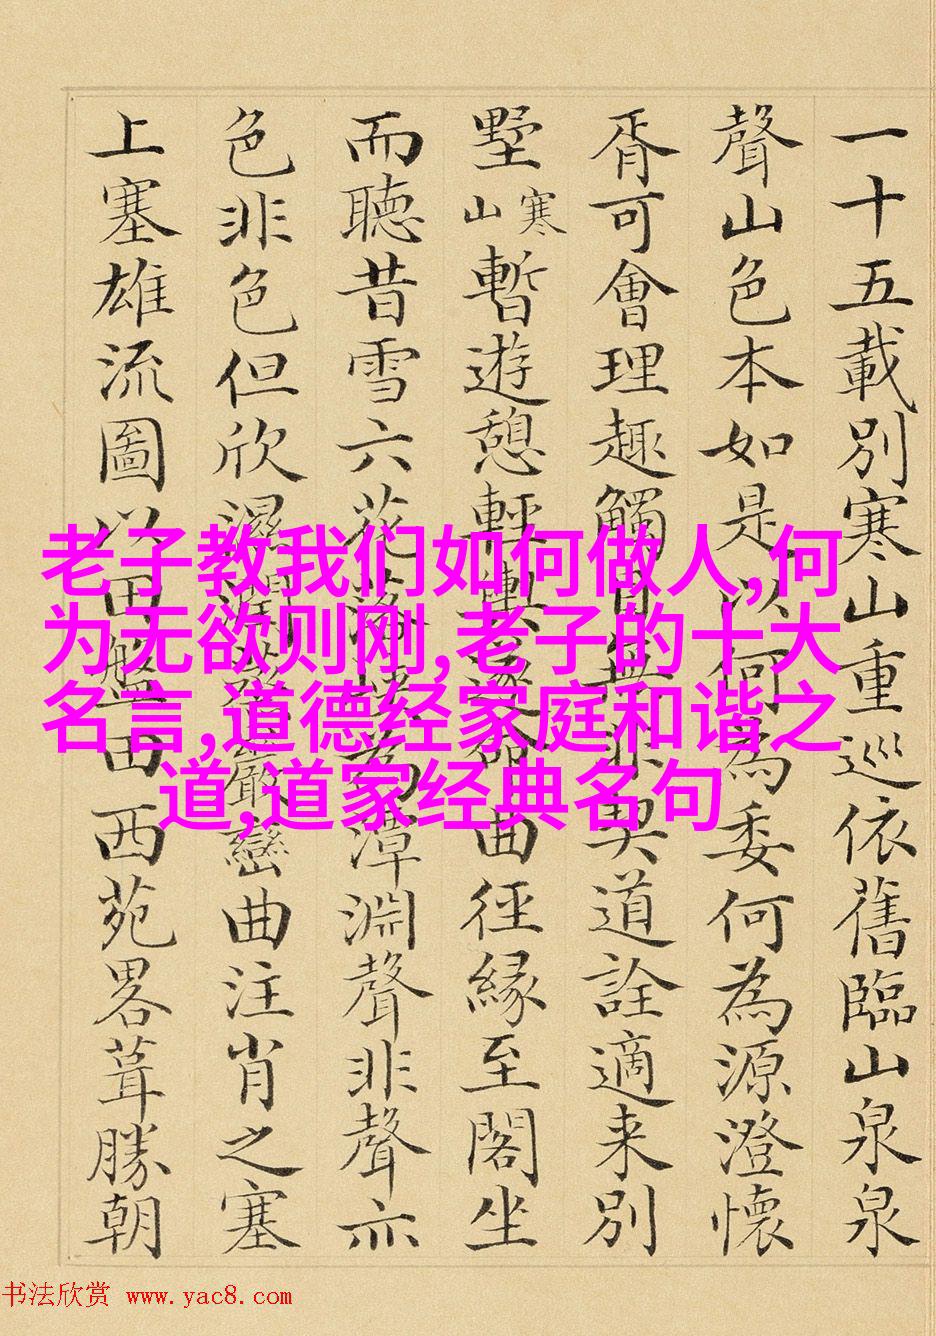 一十五載別寒山重巡依舊臨山泉泉
聲山色本如是以何為委何為源澄懷
胥可會理趣觸目無非契道詮適来別
墅寒山暫遊憩輕輿遂卻曲徑緣至閣坐
而聽昔雪六花為漳淵聲非聲亦
色非色但欣濕嚴巒曲注肖之塞
上塞雄流圖以田盤田西苑畧葺勝朝
老子教我们如何做人,何
为无欲则刚,老子的十大
名言,道德经家庭和谐之
道,道家经典名句
书法欣赏 www.yac8.com